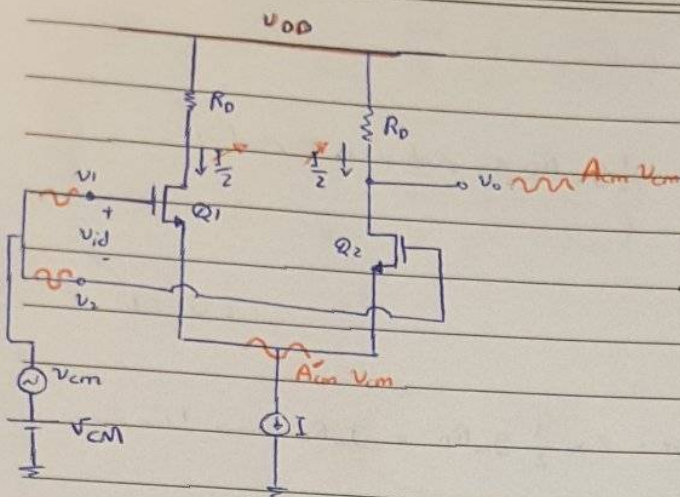 VDD
RD
RD
I/2
I/2
vo
Acm vcm
v1
+
Q1
vid
-
Q2
v2
A'cm vcm
vcm
VCM
I